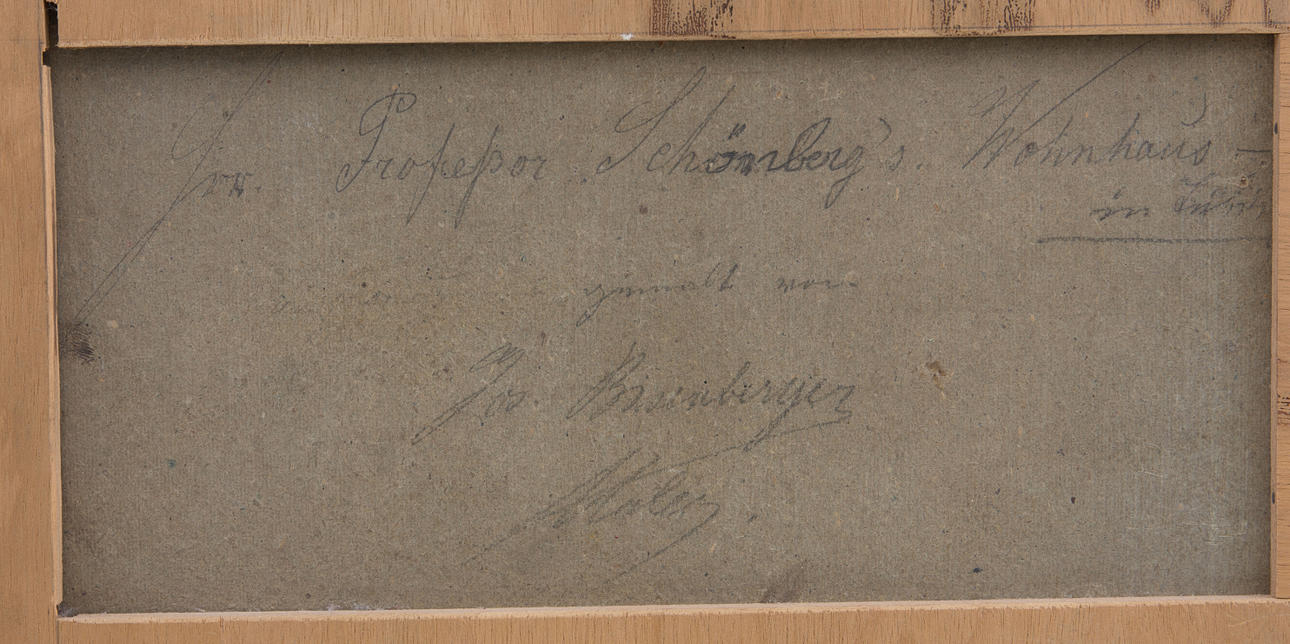 Hrr. Profeßor Schönberg's. Wohnhaus –
in
gemalt von
Jos. Brunnberger
Maler.